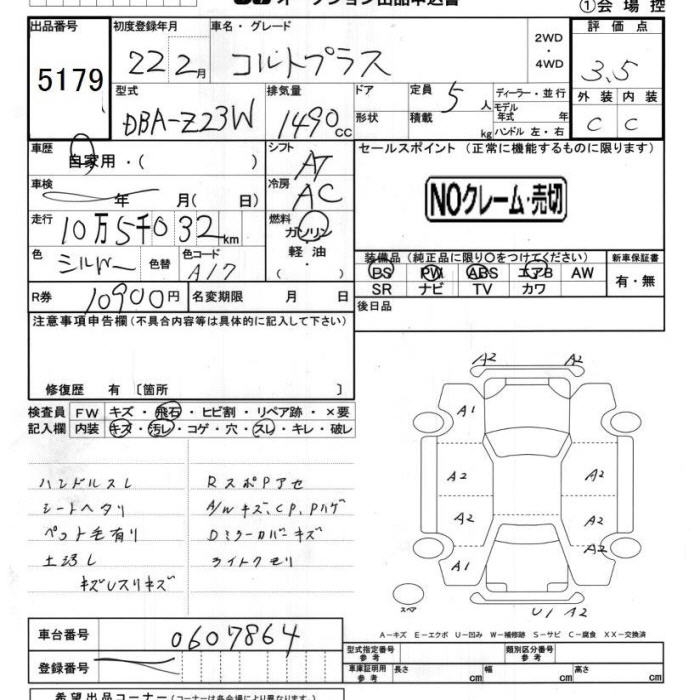 オークション出品申込書
①会場控
出品番号
5179
初度登録年月
22 2月
車名・グレード
コルトプラス
2WD
・
4WD
評価点
3.5
外装 内装
C C
型式
DBA-Z23W
排気量
1490CC
ドア
形状
定員 5人
積載 kg
ディーラー・並行
モデル年式 年
ハンドル 左・右
車歴
自家用・( )
シフト
AT
セールスポイント (正常に機能するものに限ります)
NOクレーム・売切
車検
年 月( 日)
冷房
AC
走行
10万5千032km
燃料
ガソリン
・
軽油
色
シルバー
色替
色コード
A17
装備品 (純正品に限り○をつけてください)
新車保証書
PS PW ABS エアB AW
SR ナビ TV カワ
有・無
R券 10900円
名変期限 月 日
後日品
注意事項申告欄 (不具合内容等は具体的に記入して下さい)
修復歴 有 〔箇所 〕
検査員
記入欄
FW キズ・飛石・ヒビ割・リペア跡・×要
内装 キズ・汚レ・コゲ・穴・スレ・キレ・破レ
ハンドルスレ
シートヘタリ
ペット毛有り
土汚レ
キズUスリキズ
RスポPアセ
A/Wキズ、CP、Pハゲ
Dミラーカバーキズ
ライトクモリ
A2 A2
A1
A2 A2
A2 A2
A1 A2
U1 A2
スペア
A-キズ E-エクボ U-凹み W-補修跡 S-サビ C-腐食 XX-交換済
車台番号
0607864
登録番号
型式指定番号
参考
類別区分番号
参考
車庫証明用
参考
長さ cm
幅 cm
高さ cm
希望出品コーナー (コーナーは各会場により異なります)